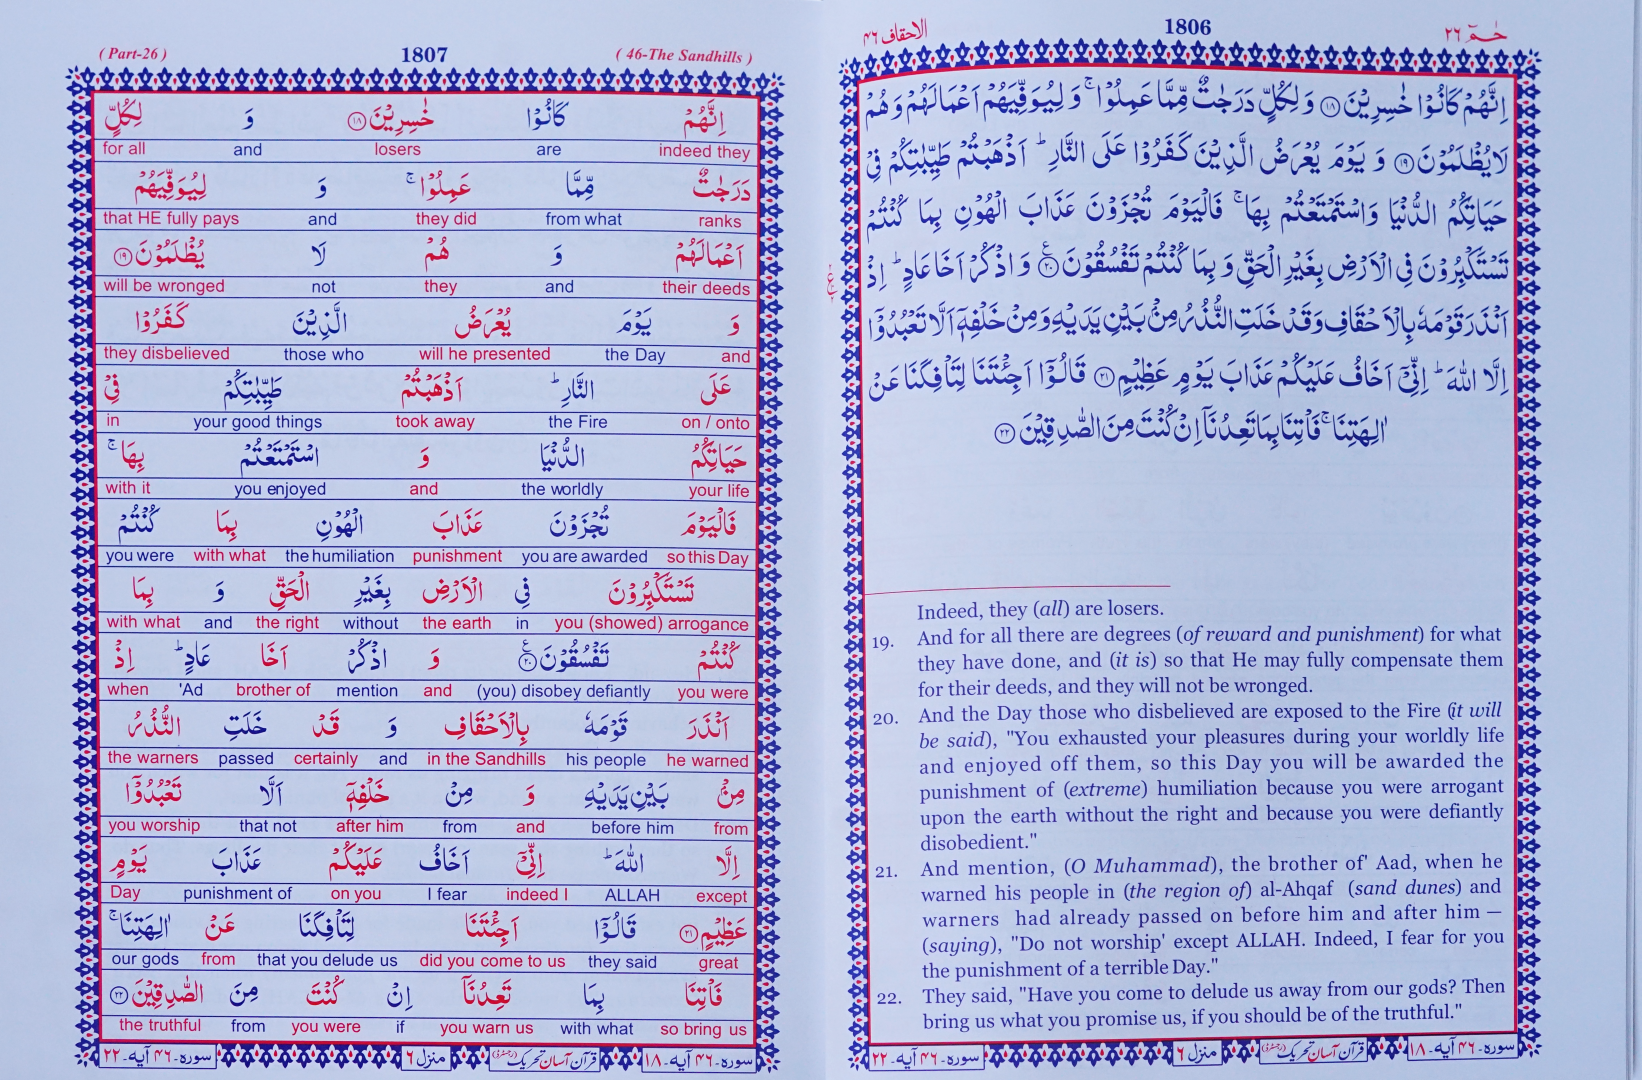 ( Part-26 ) 1807 ( 46-The Sandhills )
اِنَّهُمْ كَانُوْا خٰسِرِيْنَ ۝۱۸ وَ لِكُلٍّ
indeed they are losers and for all
دَرَجٰتٌ مِّمَّا عَمِلُوْا ۚ وَ لِيُوَفِّيَهُمْ
ranks from what they did and that HE fully pays
اَعْمَالَهُمْ وَ هُمْ لَا يُظْلَمُوْنَ ۝۱۹
their deeds and they not will be wronged
وَ يَوْمَ يُعْرَضُ الَّذِيْنَ كَفَرُوْا
and the Day will he presented those who they disbelieved
عَلَى النَّارِ ؕ اَذْهَبْتُمْ طَيِّبٰتِكُمْ فِيْ
on / onto the Fire took away your good things in
حَيَاتِكُمُ الدُّنْيَا وَ اسْتَمْتَعْتُمْ بِهَا ۚ
your life the worldly and you enjoyed with it
فَالْيَوْمَ تُجْزَوْنَ عَذَابَ الْهُوْنِ بِمَا كُنْتُمْ
so this Day you are awarded punishment the humiliation with what you were
تَسْتَكْبِرُوْنَ فِي الْاَرْضِ بِغَيْرِ الْحَقِّ وَ بِمَا
you (showed) arrogance in the earth without the right and with what
كُنْتُمْ تَفْسُقُوْنَ ۝۲۰ وَ اذْكُرْ اَخَا عَادٍ ؕ اِذْ
you were (you) disobey defiantly and mention brother of 'Ad when
اَنْذَرَ قَوْمَهٗ بِالْاَحْقَافِ وَ قَدْ خَلَتِ النُّذُرُ
he warned his people in the Sandhills and certainly passed the warners
مِنْۢ بَيْنِ يَدَيْهِ وَ مِنْ خَلْفِهٖۤ اَلَّا تَعْبُدُوْۤا
from before him and from after him that not you worship
اِلَّا اللّٰهَ ؕ اِنِّيْۤ اَخَافُ عَلَيْكُمْ عَذَابَ يَوْمٍ
except ALLAH indeed I I fear on you punishment of Day
عَظِيْمٍ ۝۲۱ قَالُوْۤا اَجِئْتَنَا لِتَاْفِكَنَا عَنْ اٰلِهَتِنَا ۚ
great they said did you come to us that you delude us from our gods
فَاْتِنَا بِمَا تَعِدُنَاۤ اِنْ كُنْتَ مِنَ الصّٰدِقِيْنَ ۝۲۲
so bring us with what you warn us if you were from the truthful
سورہ-۴۶ آیه-۱۸ قرآن آسان تحریک منزل ۶ سورہ-۴۶ آیه-۲۲
الاحقاف ۴۶ 1806 حٰمٓ ۲۶
اِنَّهُمْ كَانُوْا خٰسِرِيْنَ ۝۱۸ وَ لِكُلٍّ دَرَجٰتٌ مِّمَّا عَمِلُوْا ۚ وَ لِيُوَفِّيَهُمْ اَعْمَالَهُمْ وَ هُمْ
لَا يُظْلَمُوْنَ ۝۱۹ وَ يَوْمَ يُعْرَضُ الَّذِيْنَ كَفَرُوْا عَلَى النَّارِ ؕ اَذْهَبْتُمْ طَيِّبٰتِكُمْ فِيْ
حَيَاتِكُمُ الدُّنْيَا وَاسْتَمْتَعْتُمْ بِهَا ۚ فَالْيَوْمَ تُجْزَوْنَ عَذَابَ الْهُوْنِ بِمَا كُنْتُمْ
تَسْتَكْبِرُوْنَ فِي الْاَرْضِ بِغَيْرِ الْحَقِّ وَ بِمَا كُنْتُمْ تَفْسُقُوْنَ ۝۲۰ وَ اذْكُرْ اَخَا عَادٍ ؕ اِذْ
اَنْذَرَ قَوْمَهٗ بِالْاَحْقَافِ وَ قَدْ خَلَتِ النُّذُرُ مِنْۢ بَيْنِ يَدَيْهِ وَ مِنْ خَلْفِهٖۤ اَلَّا تَعْبُدُوْۤا
اِلَّا اللّٰهَ ؕ اِنِّيْۤ اَخَافُ عَلَيْكُمْ عَذَابَ يَوْمٍ عَظِيْمٍ ۝۲۱ قَالُوْۤا اَجِئْتَنَا لِتَاْفِكَنَا عَنْ
اٰلِهَتِنَا ۚ فَاْتِنَا بِمَا تَعِدُنَاۤ اِنْ كُنْتَ مِنَ الصّٰدِقِيْنَ ۝۲۲
Indeed, they (all) are losers.
19. And for all there are degrees (of reward and punishment) for what
they have done, and (it is) so that He may fully compensate them
for their deeds, and they will not be wronged.
20. And the Day those who disbelieved are exposed to the Fire (it will
be said), "You exhausted your pleasures during your worldly life
and enjoyed off them, so this Day you will be awarded the
punishment of (extreme) humiliation because you were arrogant
upon the earth without the right and because you were defiantly
disobedient."
21. And mention, (O Muhammad), the brother of' Aad, when he
warned his people in (the region of) al-Ahqaf (sand dunes) and
warners had already passed on before him and after him —
(saying), "Do not worship' except ALLAH. Indeed, I fear for you
the punishment of a terrible Day."
22. They said, "Have you come to delude us away from our gods? Then
bring us what you promise us, if you should be of the truthful."
سورہ-۴۶ آیه-۱۸ قرآن آسان تحریک منزل ۶ سورہ-۴۶ آیه-۲۲